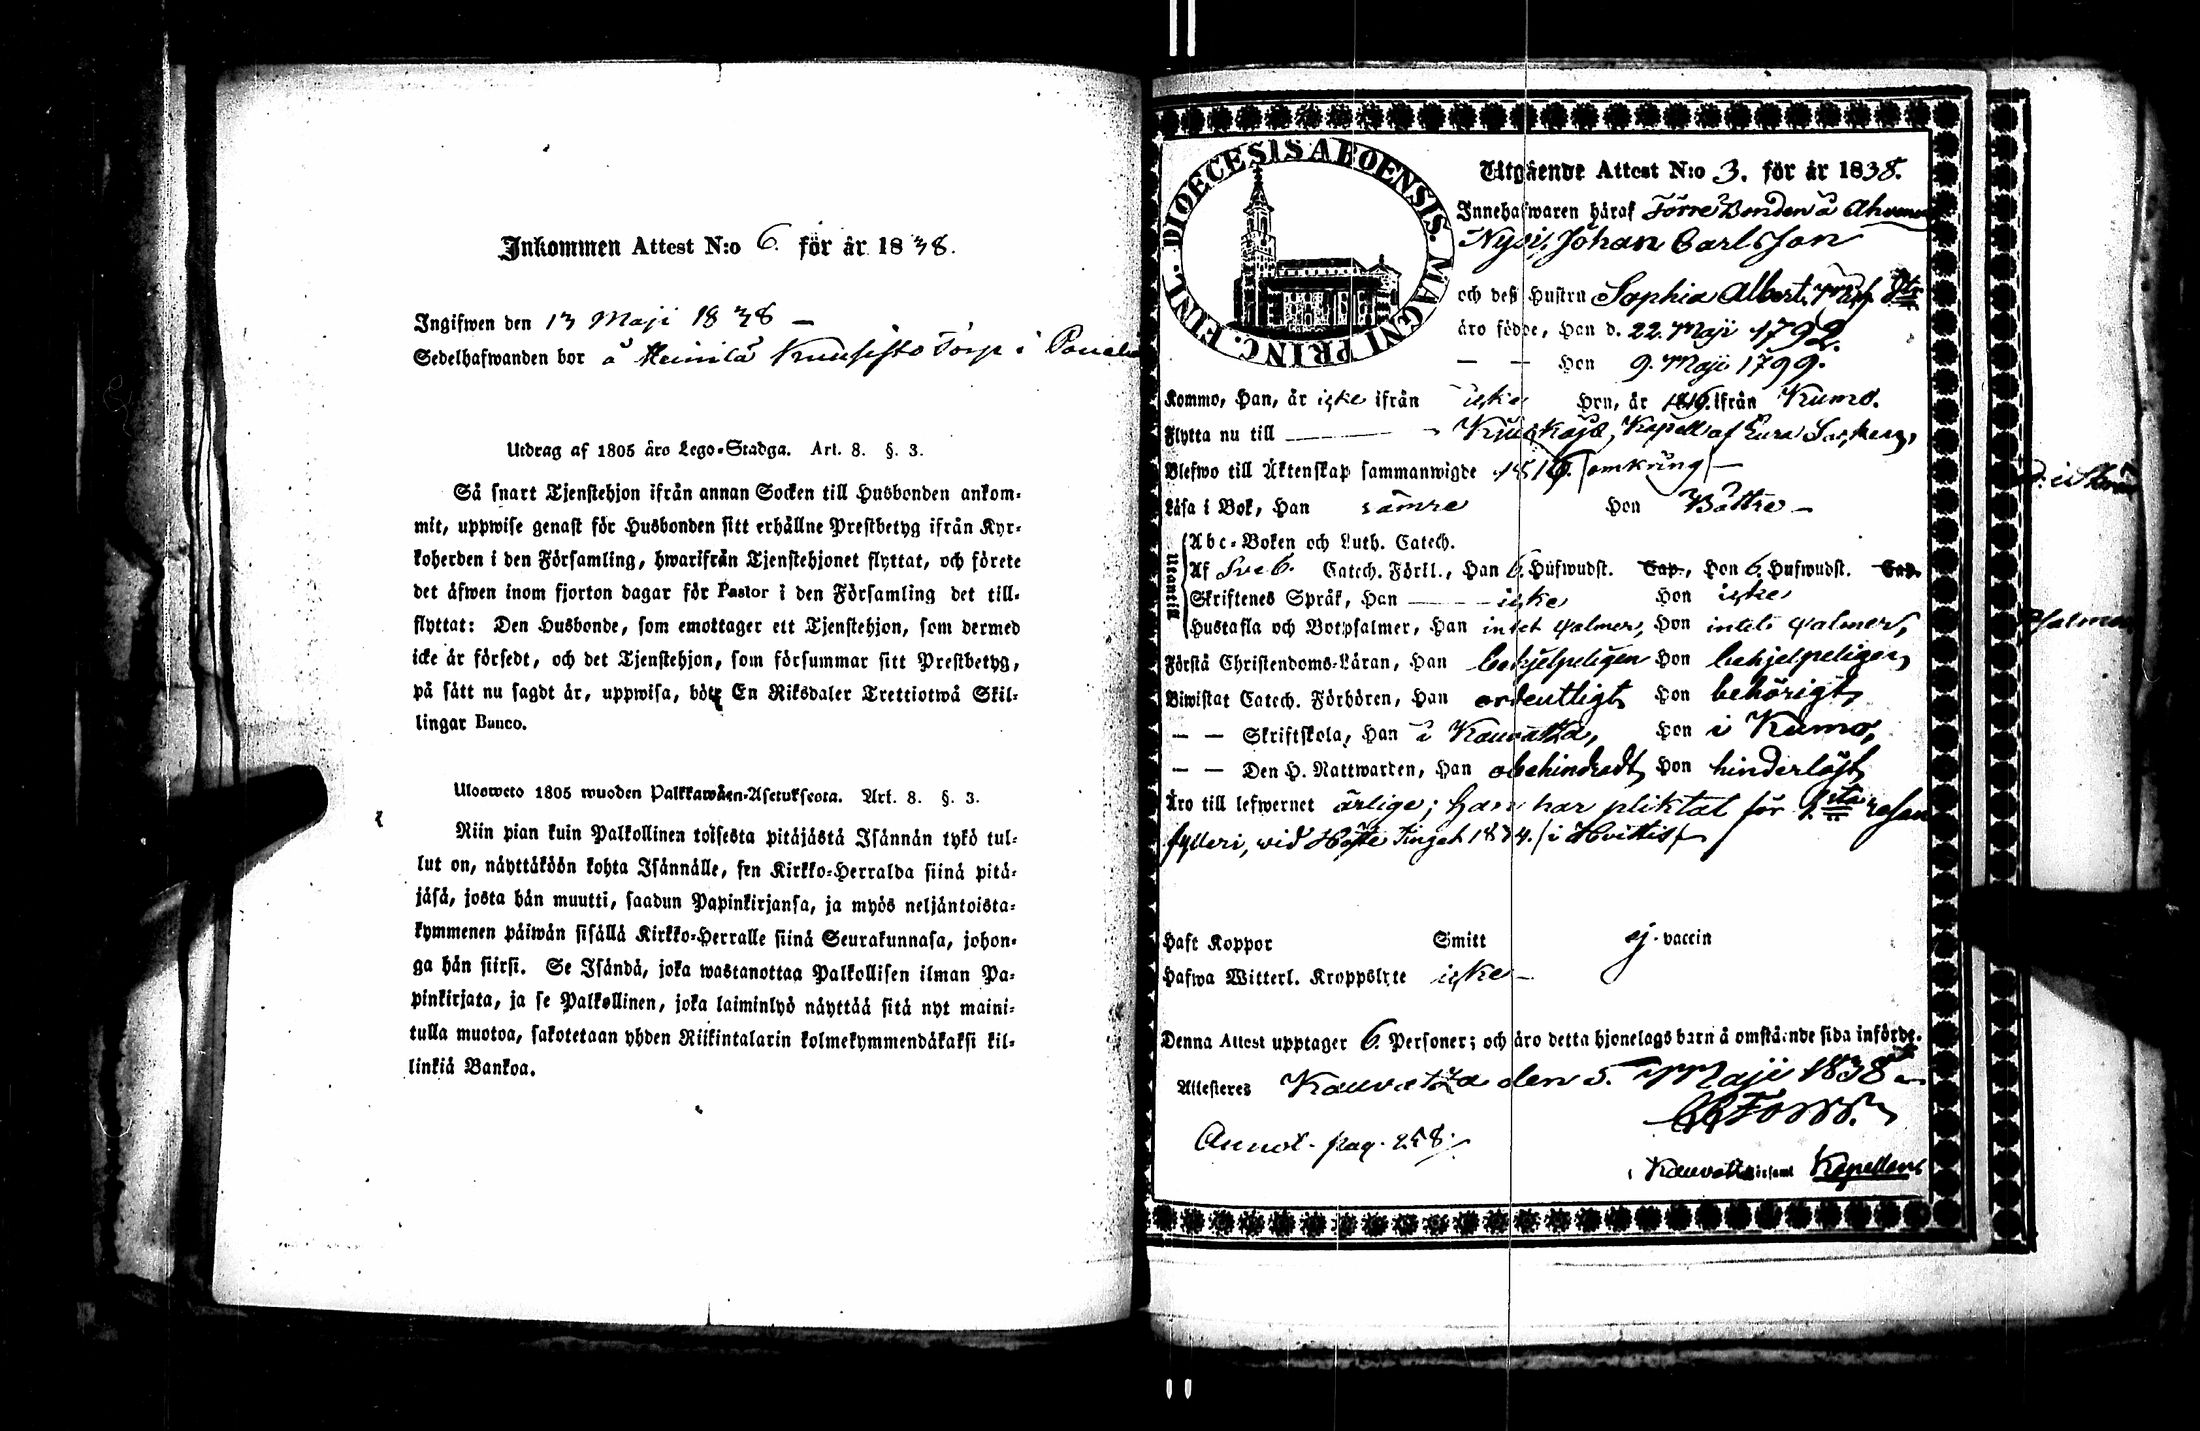 Inkommen Attest N:o 6. för år 1838.
Ingifwen den 13 Maji 1838 —
Sedelhafwanden bor å Heinilä Kuusisto Torp i
Utdrag af 1805 års Lego-Stadga. Art. 8. §. 3.
Så snart Tjenstehjon ifrån annan Socken till Husbonden ankom-
mit, uppwise genast för Husbonden sitt erhållne Prestbetyg ifrån Kyr-
koherden i den Församling, hwarifrån Tjenstehjonet flyttat, och förete
det äfwen inom fjorton dagar för Pastor i den Församling det till-
flyttat: Den Husbonde, som emottager ett Tjenstehjon, som dermed
icke är försedt, och det Tjenstehjon, som försummar sitt Prestbetyg,
på sätt nu sagdt är, uppwisa, böte En Riksdaler Trettiotwå Skil-
lingar Banco.
Ulosweto 1805 wuoden Palkkawäen-Asetuksesta. Art. 8. §. 3.
Niin pian kuin Palkollinen toisesta pitäjästä Isännän tykö tul-
lut on, näyttäköön kohta Isännälle, sen Kirkko-Herralda siinä pitä-
jäsä, josta hän muutti, saadun Papinkirjansa, ja myös neljäntoista-
kymmenen päiwän sisällä Kirkko-Herralle siinä Seurakunnasa, johon-
ga hän siirsi. Se Isändä, joka wastanottaa Palkollisen ilman Pa-
pinkirjata, ja se Palkollinen, joka laiminlyö näyttää sitä nyt maini-
tulla muotoa, sakotetaan yhden Riikintalarin kolmekymmendäkaksi kil-
linkiä Bankoa.
DIOECESIS ABOENSIS. MAGNI PRINC. FINL.
Utgående Attest N:o 3. för år 1838.
Innehafwaren häraf Förre Bonden å
Nysi, Johan Carlsson
och dess Hustru Sophia Albert.
äro födde, Han d. 22. Maji 1792.
— — Hon 9. Maji 1799.
Kommo, Han, år icke ifrån icke Hon, år 1816. ifrån Kumo.
Flytta nu till — Kjuikais, Kapell af Eura Socken,
Blefwo till Äktenskap sammanwigde 1816. /omkring/ —
Läsa i Bok, Han sämre Hon Bättre —
Utantill
Abc-Boken och Luth. Catech.
Af Sveb. Catech. Förkl., Han 6. Hufwudst. Cap., Hon 6. Hufwudst. Cap.
Skriftenes Språk, Han — icke Hon icke
Hustafla och Botpsalmer, Han intet psalmer, Hon intet psalmer,
Förstå Christendoms-Läran, Han behjelpeligen Hon behjelpeligen
Biwistat Catech. Förhören, Han ordentligt Hon behörigt,
— — Skriftskola, Han i Kauvatza, Hon i Kumo,
— — Den H. Nattwarden, Han obehindradt, Hon hinderlöst,
Äro till lefwernet ärlige; Han har pliktat för 1sta resan
fylleri, wid Höste Tinget 1834. /i Hvittis/
Haft Koppor Smitt ej. vaccin
Hafwa Witterl. Kroppslyte icke —
Denna Attest upptager 6. Personer; och äro detta hjonelags barn å omstående sida införde.
Attesteres Kauvatza den 5. Maji 1838
Annot. pag. 258.
i Kauvatza Församl. Kapellans